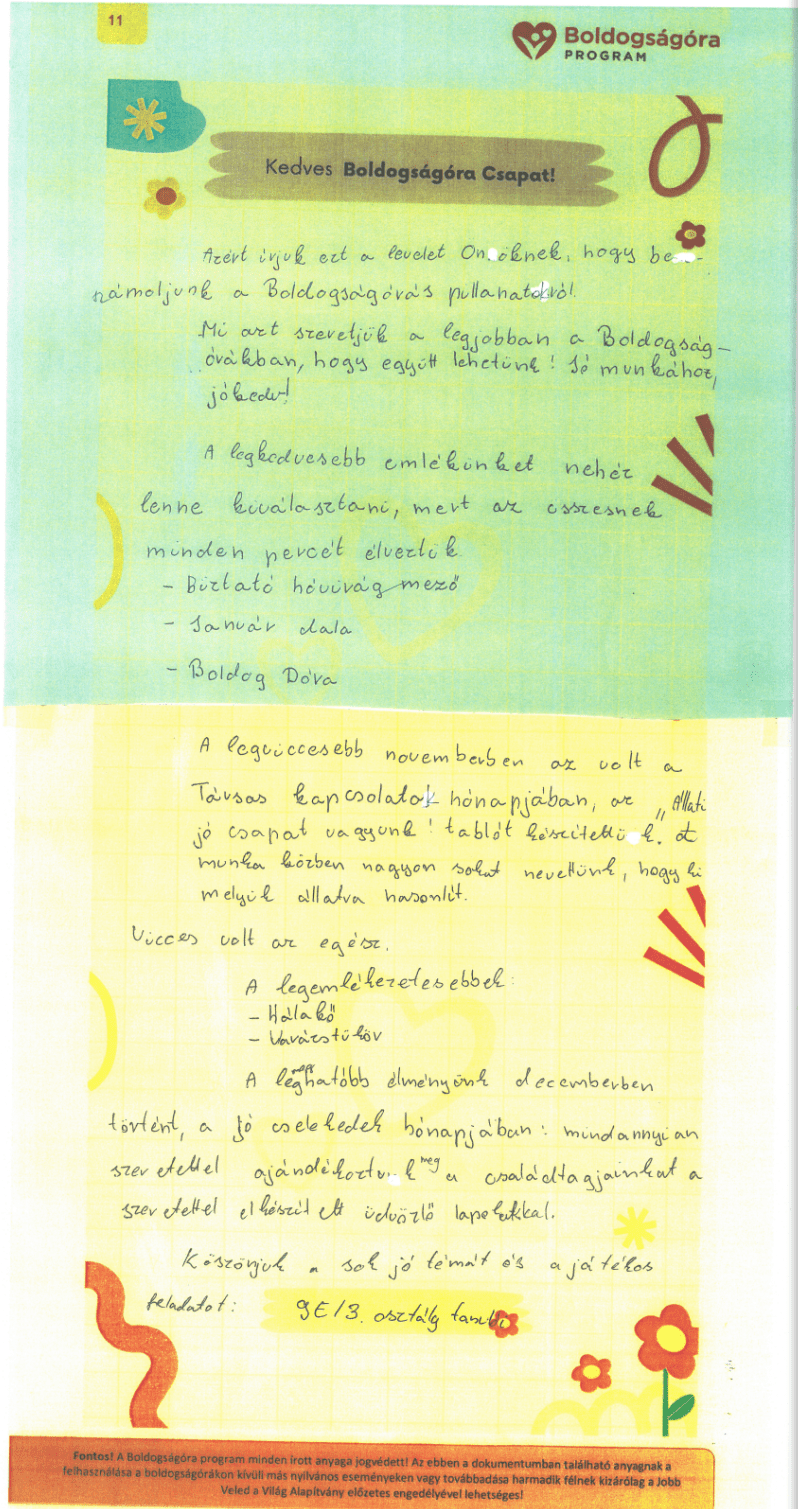 11
Boldogságóra
PROGRAM
Kedves Boldogságóra Csapat!
Azért írjuk ezt a levelet Önöknek, hogy be-
számoljunk a Boldogságórás pillanatokról.
Mi azt szeretjük a legjobban a Boldogság-
órákban, hogy együtt lehetünk! Jó munkához,
jókedv!
A legkedvesebb emlékünket nehéz
lenne kiválasztani, mert az összesnek
minden percét élveztük
- Bíztató hóvirág mező
- Január dala
- Boldog Dóra
A legviccesebb novemberben az volt a
Társas kapcsolatok hónapjában, az "Állati
jó csapat vagyunk! tablót készítettük. A
munka közben nagyon sokat nevettünk, hogy ki
melyik állatra hasonlít.
Vicces volt az egész.
A legemlékezetesebbek:
- Hálakő
- Varázstükör
A legmeghatóbb élményünk decemberben
történt, a Jó cselekedek hónapjában: mindannyian
szeretettel ajándékoztunk meg a családtagjainkat a
szeretettel elkészített üdvözlő lapokkal.
Köszönjük a sok jó témát és a játékos
feladatot:
9E/3. osztály tanulói
Fontos! A Boldogságóra program minden írott anyaga jogvédett! Az ebben a dokumentumban található anyagnak a
felhasználása a boldogságórákon kívüli más nyilvános eseményeken vagy továbbadása harmadik félnek kizárólag a Jobb
Veled a Világ Alapítvány előzetes engedélyével lehetséges!